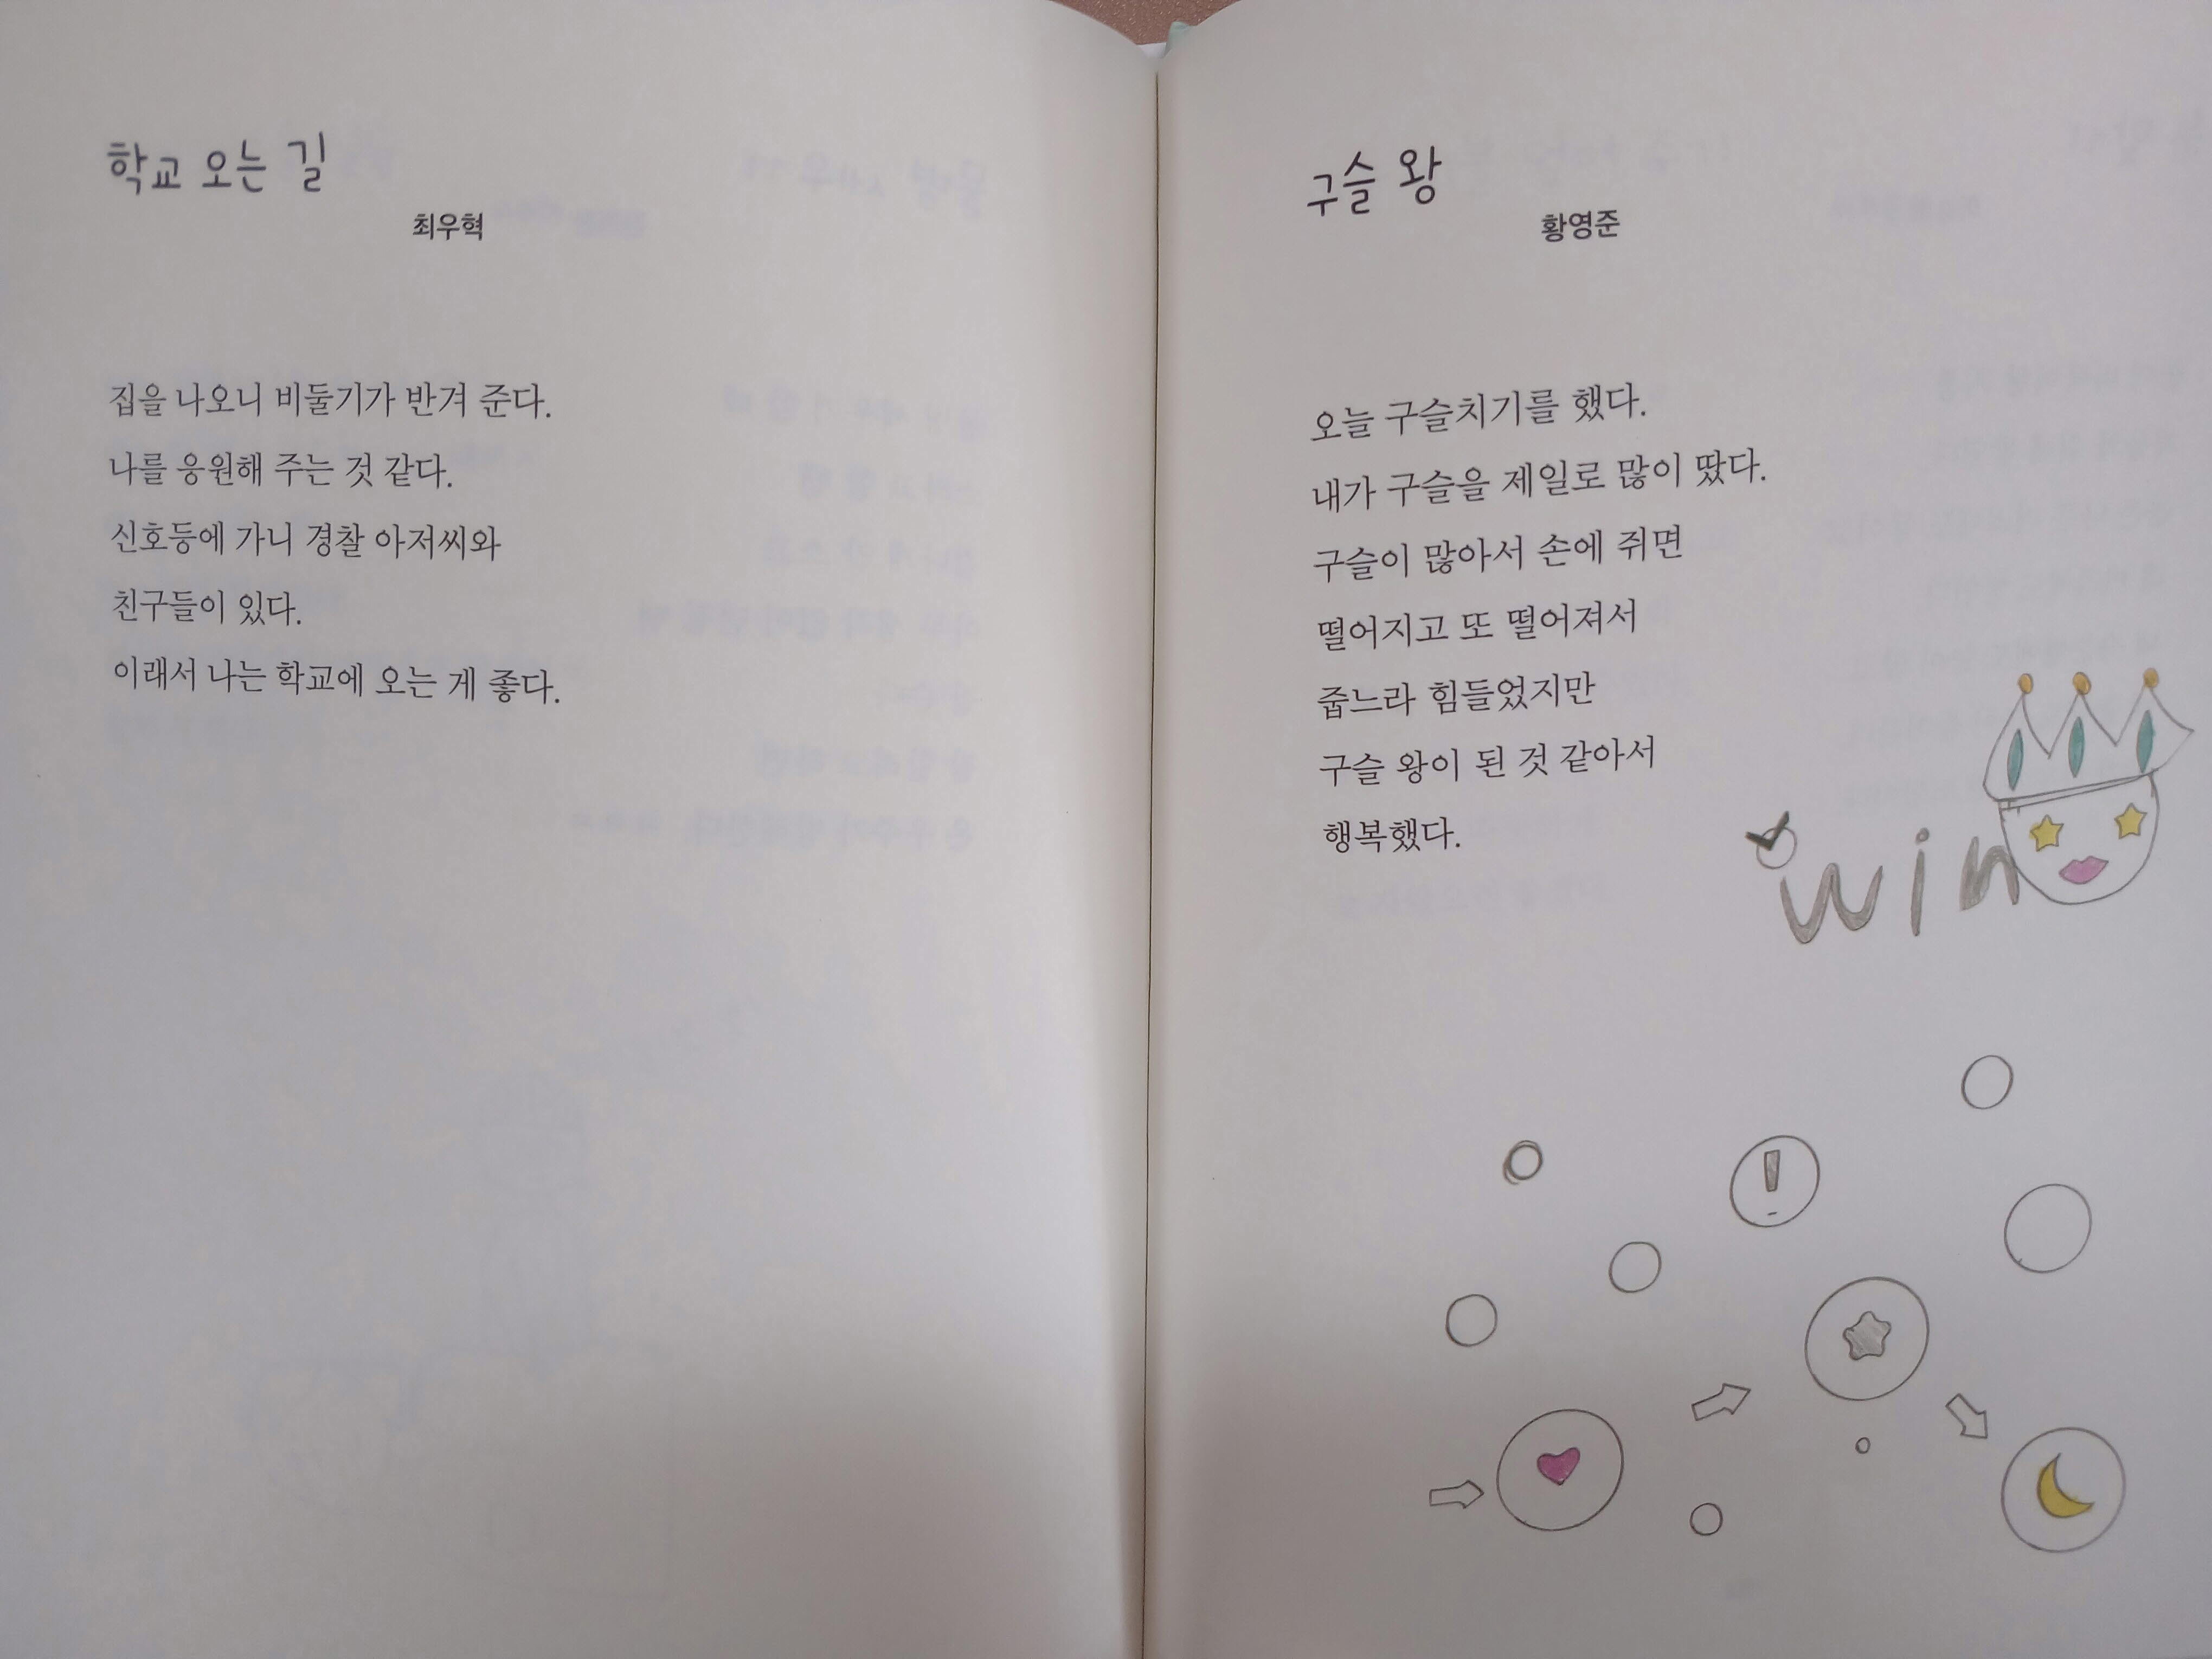 학교 오는 길
최우혁
집을 나오니 비둘기가 반겨 준다.
나를 응원해 주는 것 같다.
신호등에 가니 경찰 아저씨와
친구들이 있다.
이래서 나는 학교에 오는 게 좋다.
구슬 왕
황영준
오늘 구슬치기를 했다.
내가 구슬을 제일로 많이 땄다.
구슬이 많아서 손에 쥐면
떨어지고 또 떨어져서
줍느라 힘들었지만
구슬 왕이 된 것 같아서
행복했다.
win
!